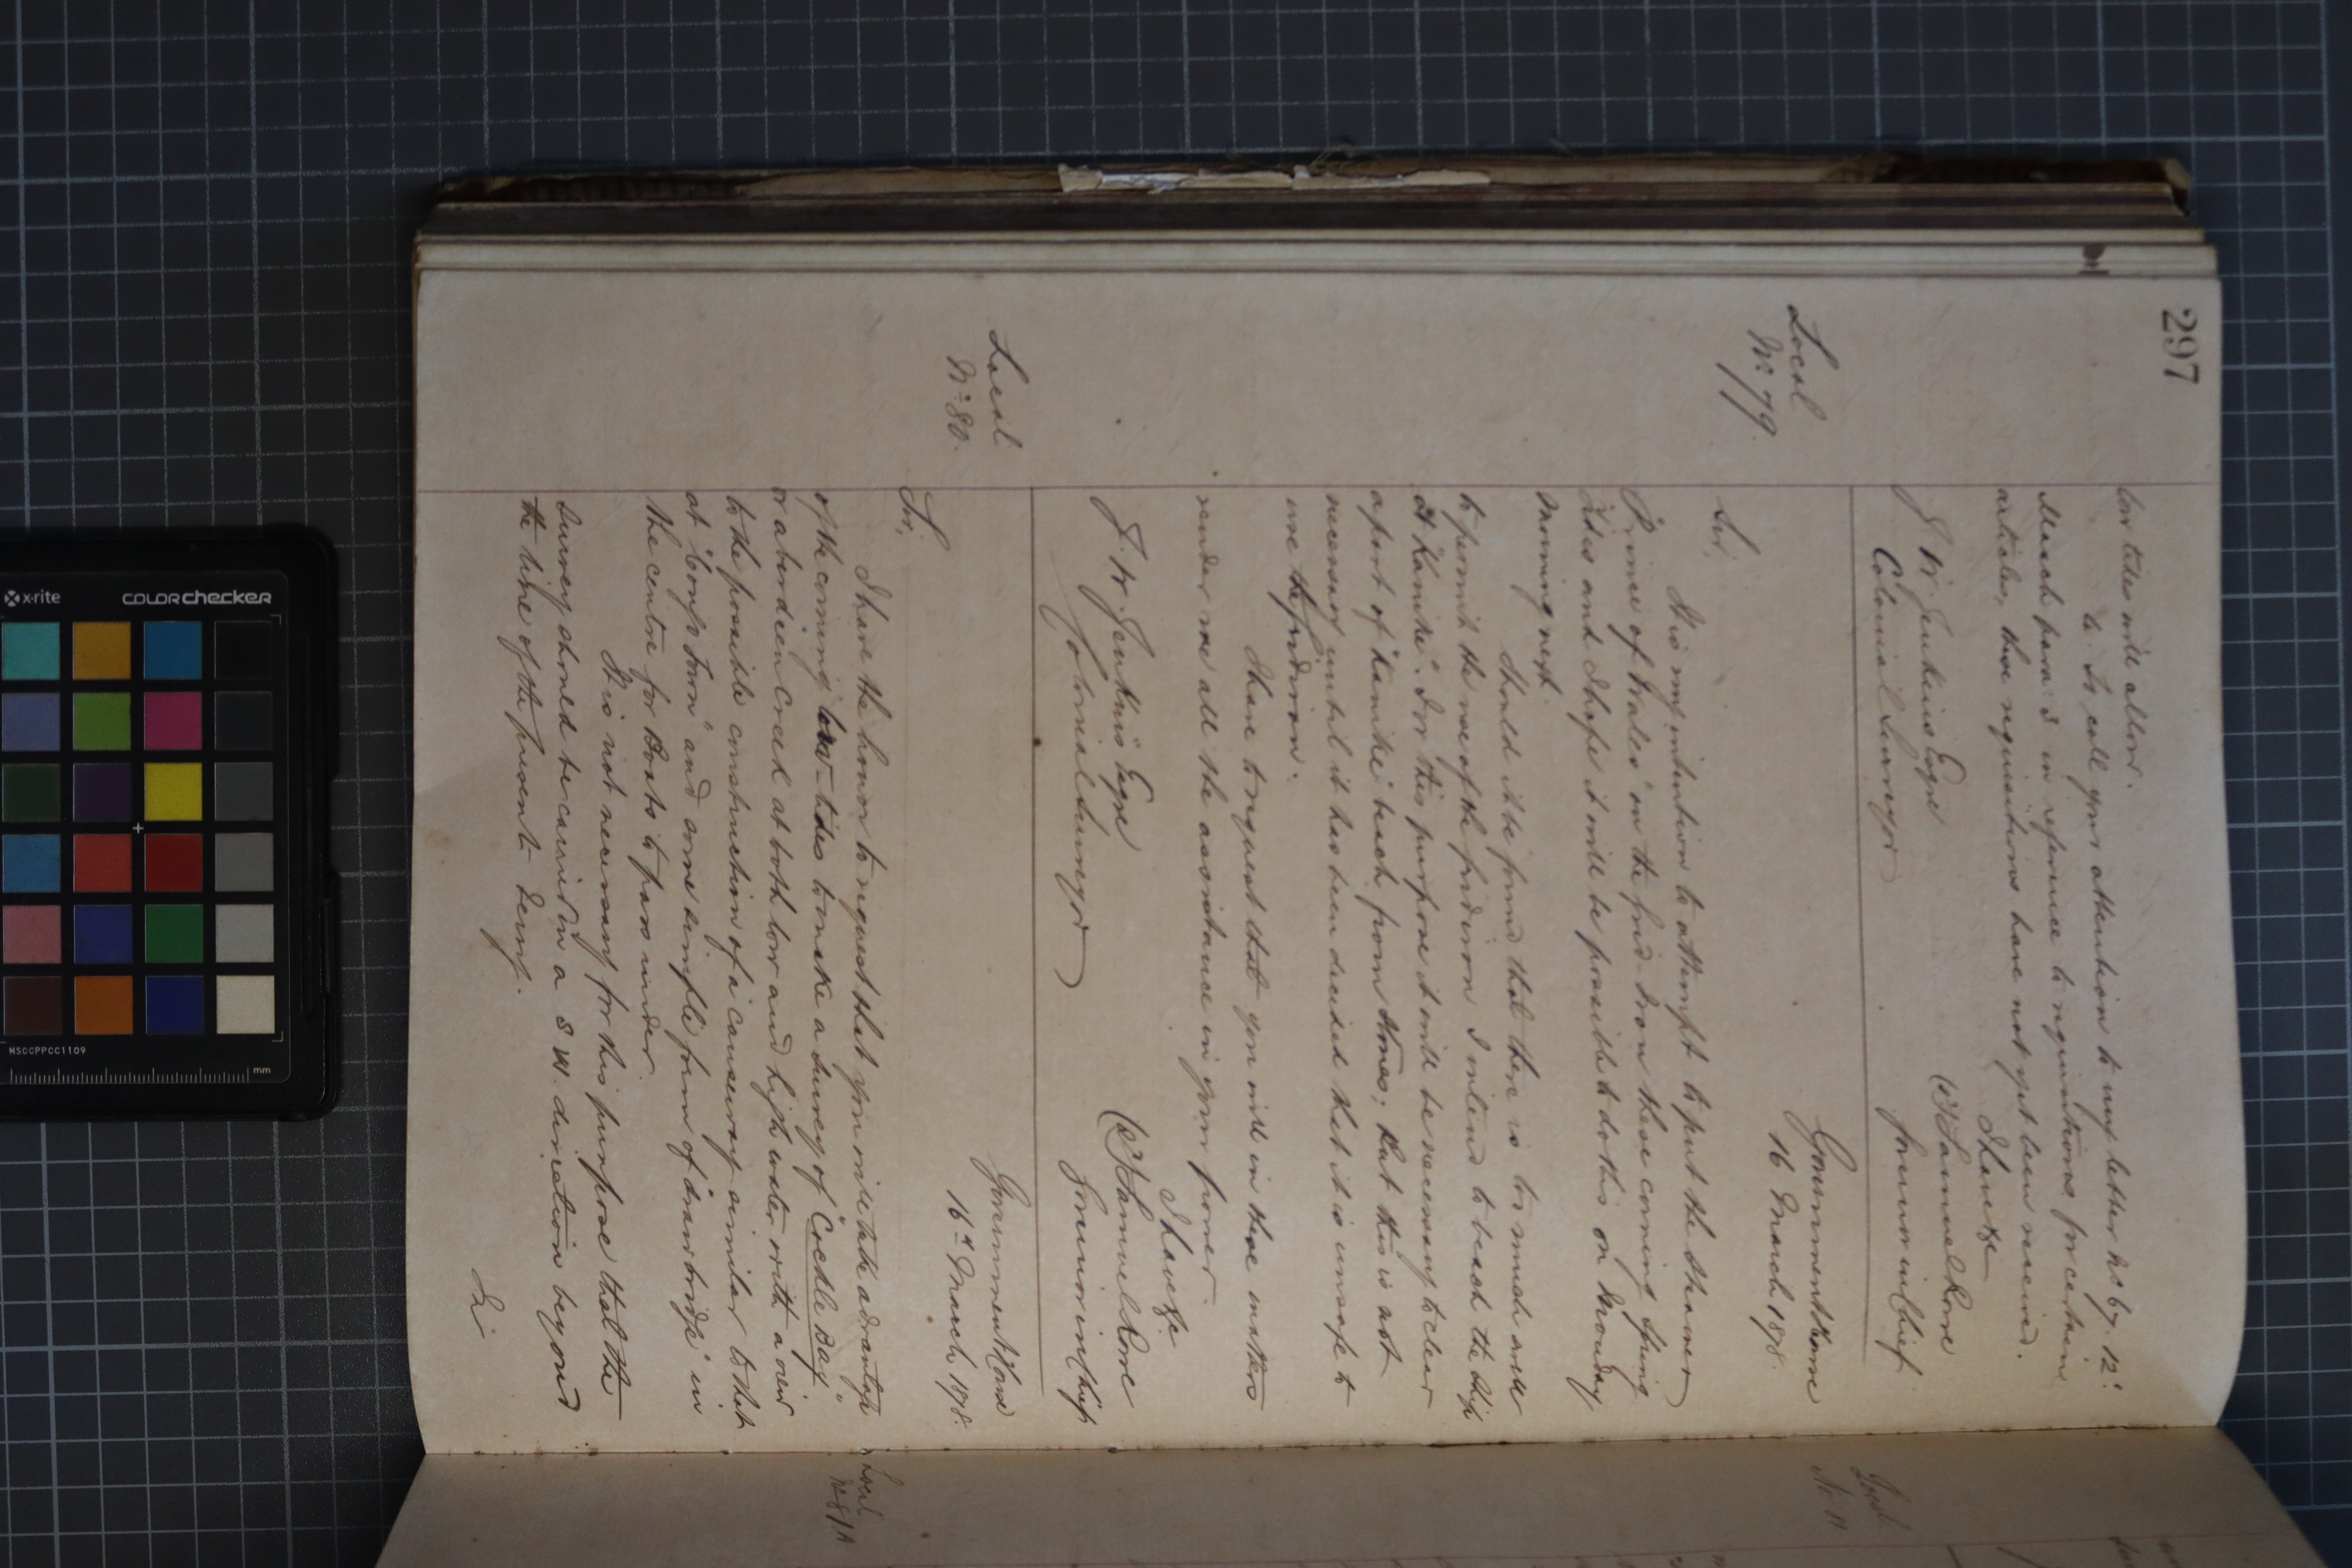 297
low tides will allow.
6. To call your attention to my letter No 67. 12:
March para: 3 in reference to requisitions for certain
articles, those requisitions have not yet been received.
I have &c
(Sd) Samuel Rowe
Governor in Chief
J. W. Jenkins Esqre
Colonial Surveyor
Local
No: 79.
Government House
16 March 1878.
Sir,
It is my intention to attempt to put the steamer
"Prince of Wales" on the Grid-Iron these coming Spring
Tides and I hope it will be possible to do this on Monday
morning next.
Should it be found that there is too much swell
to permit the use of the Gridiron I intend to beach the ship
at "Kanike". For this purpose it will be necessary to clear
a part of "Kanike" beach from stones; but this is not
necessary until it has been decided that it is unsafe to
use the Gridiron.
I have to request that you will in these matters
render me all the assistance in your power.
I have &c
(Sd) Samuel Rowe
Governor in Chief
J. W. Jenkins Esqre
Colonial Surveyor
Local
No: 80.
Government House
16th March, 1878.
Sir,
I have the honor to request that you will take advantage
of the coming low-tides to make a survey of "Cockle Bay"
or aberdeen Creek at both low and high water with a view
to the possible construction of a causeway similar to that
at "Congo Town" and some simple form of "drawbridge" in
the centre for Boats to pass under.
It is not necessary for this purpose that the
survey should be carried in a S W. direction beyond
the line of the present Ferry.
Local
No 81A
Local
No